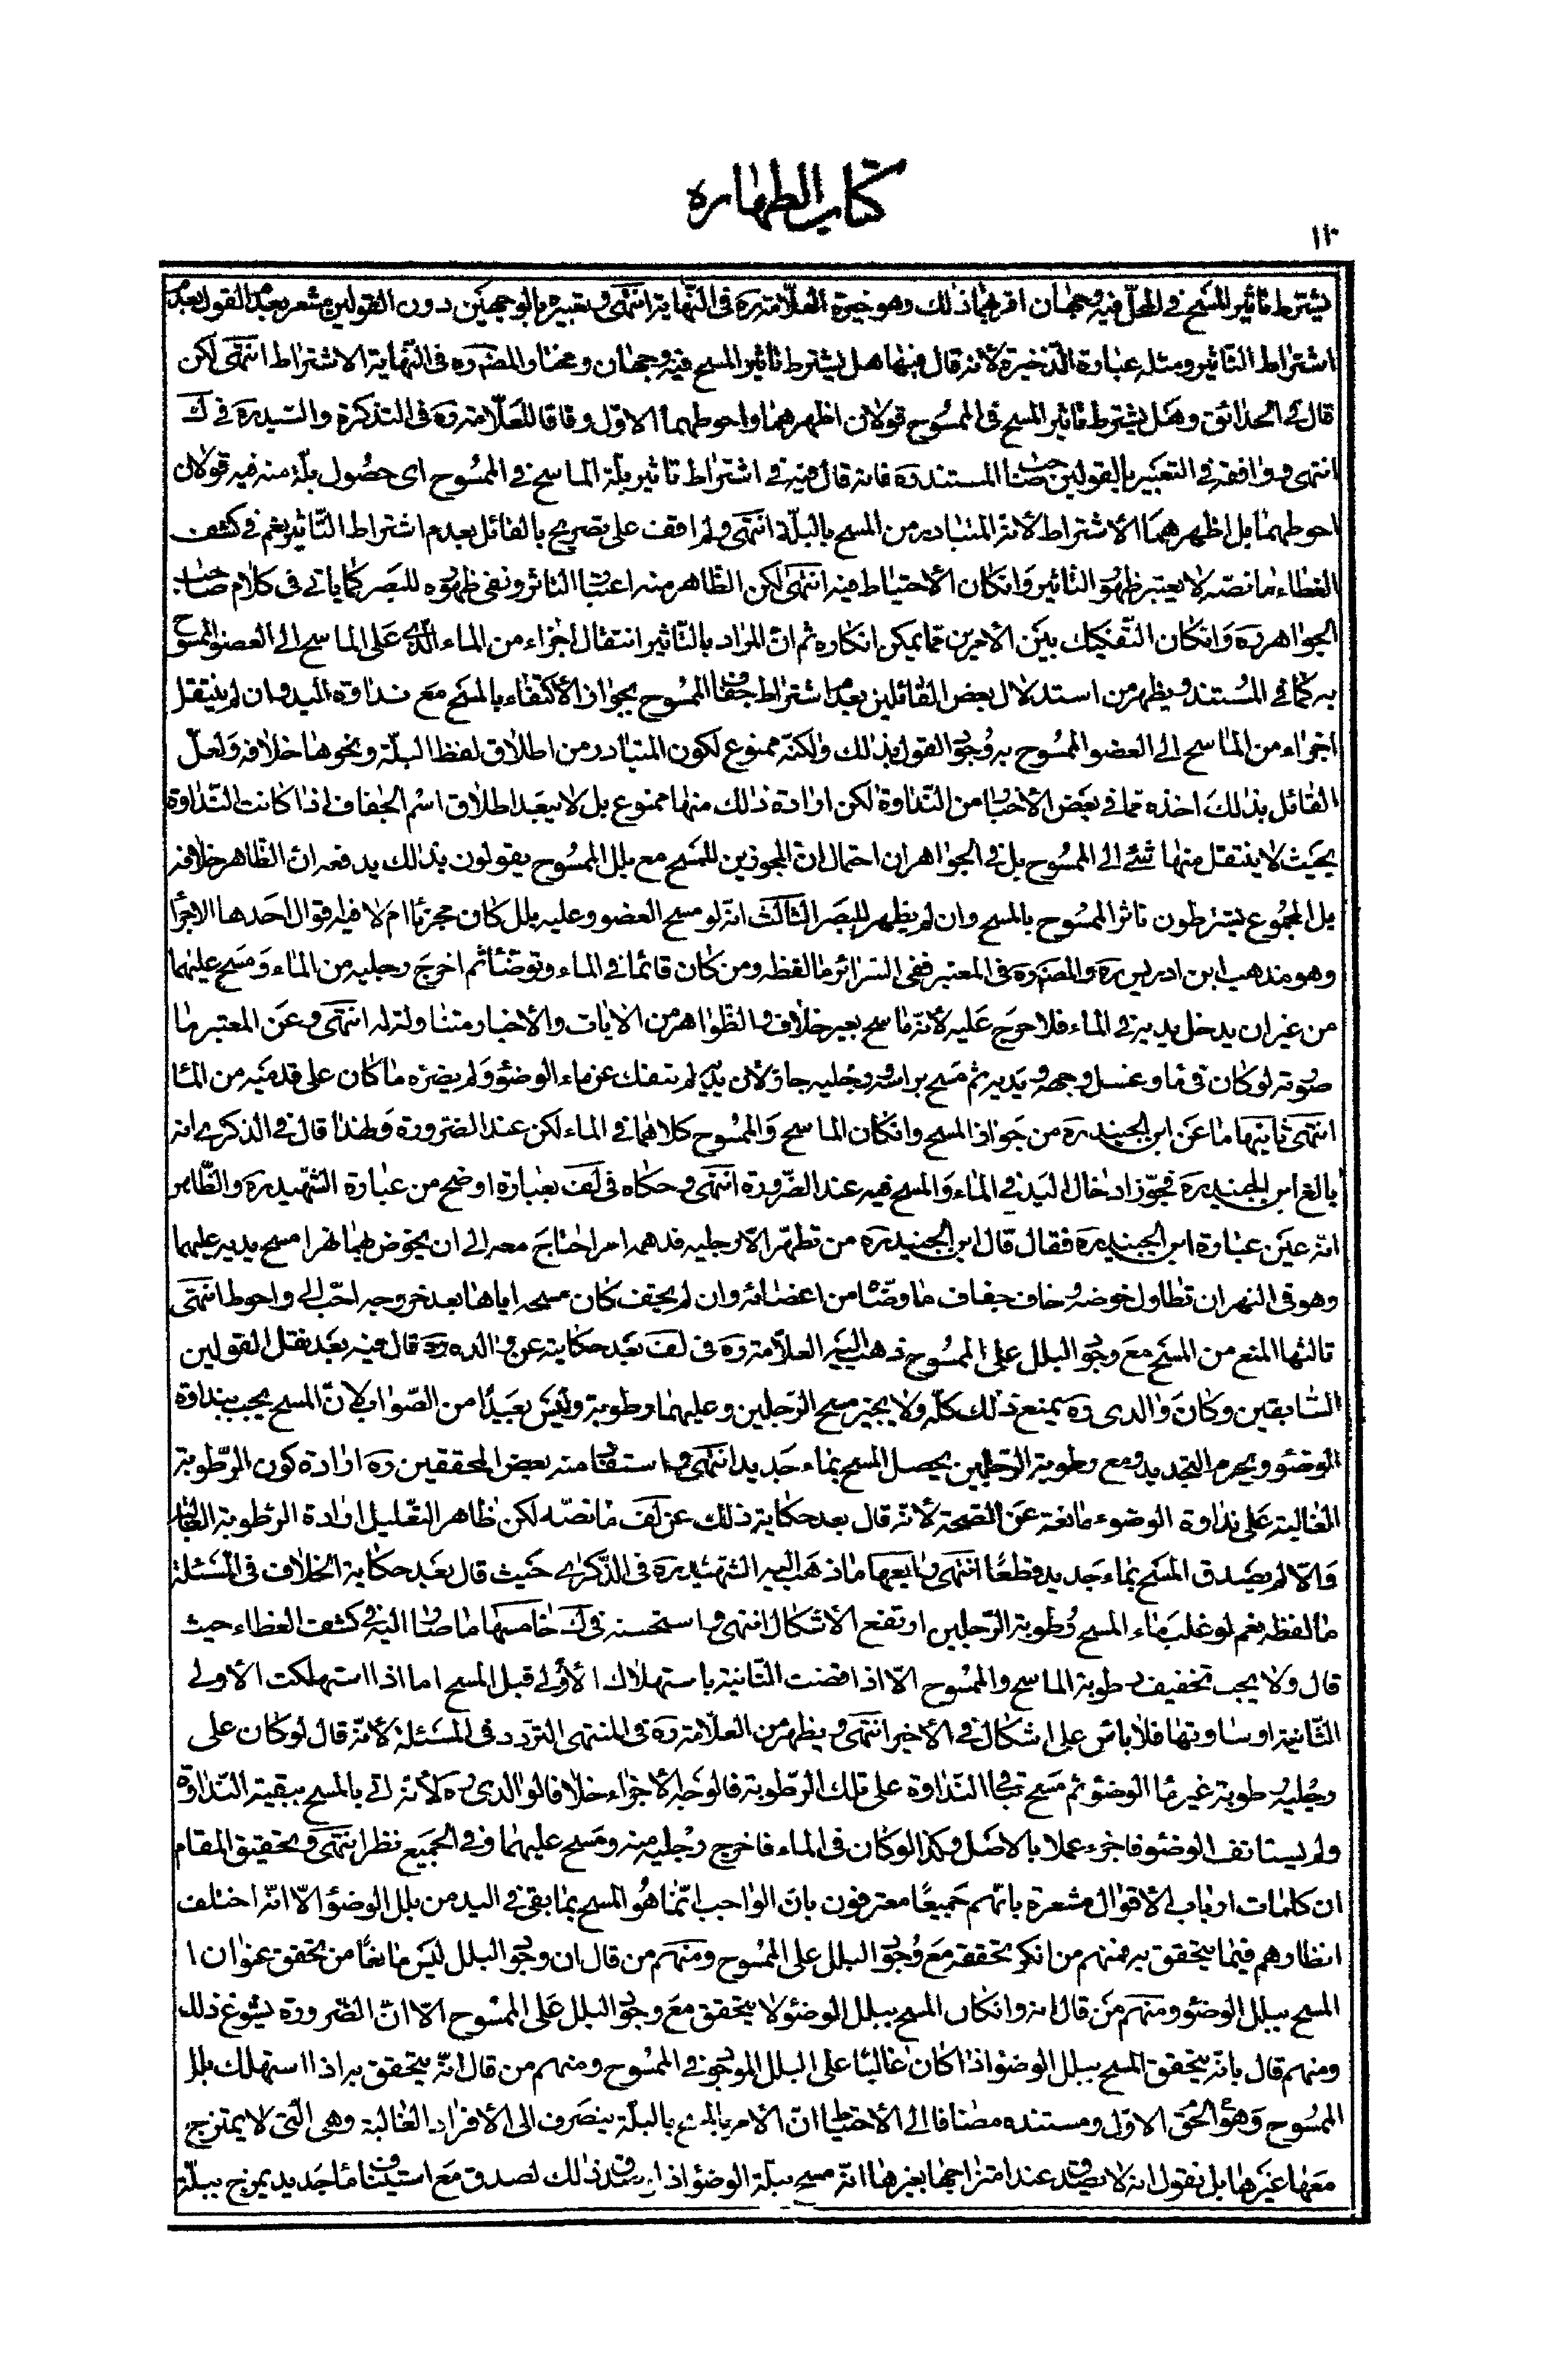 كتاب الطهاره
١١٠
يشترط تاثير المسح في المحلّ فيه وجهان اقربهما ذلك وهو خيرة العلّامة ره فى النّهاية انتهى وتعبيره بالوجهين دون القولين مشعر بعدم القول بعدم
اشتراط التّأثير ومثله عبارة الذّخيرة لأنه قال فيها هل يشترط تاثير المسح فيه وجهان ومختار المصنّف ره فى النّهاية الاشتراط انتهى لكن
قال في الحدائق وهل يشترط تاثير المسح فى الممسوح قولان اظهرهما واحوطهما الاوّل وفاقا للعلّامة ره فى التذكرة والسّيد ره في ك
انتهى ووافقه في التعبير بالقولين صاحب المستند ره فانه قال فيه في اشتراط تاثير بلّة الماسح في الممسوح اى حصول بلّة منه فيه قولان
احوطهما بل اظهرهما الأشتراط لأنه المتبادر من المسح بالبلّة انتهى ولم اقف على تصريح بالقائل بعدم اشتراط التّاثير نعم في كشف
الغطاء ما نصّه لا يعتبر ظهور التأثير وانكان الأحتياط فيه انتهى لكن الظّاهر منه اعتبار التاثر ونفى ظهوره للبصر كما ياتي في كلام صاحب
الجواهر ره وانكان التّفكيك بين الأمرين ممّا يمكن انكاره ثم انّ المراد بالتّأثير انتقال اجزاء من الماء الّذي على الماسح الى العضو الممسوح
به كما في المستند ويظهر من استدلال بعض القائلين بعدم اشتراط جفاف الممسوح بجواز الأكتفاء بالمسح مع نداوة اليد وان لم ينتقل
اجزاء من الماسح الى العضو الممسوح به وجود القول بذلك ولكنّه ممنوع لكون المتبادر من اطلاق لفظ البلّة ونحوها خلافه ولعلّ
القائل بذلك اخذه مما في بعض الأخبار من النّداوة لكن ارادة ذلك منها ممنوع بل لا يبعد اطلاق اسم الجفاف اذا كانت النّداوة
بحيث لا ينتقل منها شئ الى الممسوح بل في الجواهر ان احتمال انّ المجوزين للمسح مع بلل الممسوح يقولون بذلك يدفعه انّ الظّاهر خلافه
بل المجموع يشترطون تاثر الممسوح بالمسح وان لم يظهر للبصر الثالث انّه لو مسح العضو وعليه بلل كان مجزيا ام لا فيه اقوال احدها الاجزاء
وهو مذهب ابن ادريس ره والمصنّف ره فى المعتبر ففى السّرائر ما لفظه ومن كان قائما في الماء وتوضّأ ثم اخرج رجليه من الماء ومسح عليهما
من غير ان يدخل يديه في الماء فلا حرج عليه لأنّه ماسح بغير خلاف والظّواهر من الايات والأخبار متناولة له انتهى وعن المعتبر ما
صورته لو كان فى ماء وغسل وجهه ويديه ثم مسح براسه ورجليه جاز لأن يديه لم تنفك عن ماء الوضوء ولم يضره ما كان على قدميه من الماء
انتهى ثانيها ما عن ابن الجنيد ره من جواز المسح وانكان الماسح والممسوح كلاهما في الماء لكن عند الضرورة ولهذا قال في الذكرى انه
بالغ ابن الجنيد ره فجوّز ادخال اليد في الماء والمسح فيه عند الضّرورة انتهى وحكاه فى لف بعبارة اوضح من عبارة الشّهيد ره والظّاهر
انّه عين عبارة ابن الجنيد ره فقال قال ابن الجنيد ره من تطهّر الّا رجليه فدهمه امر احتاج معه الى ان يخوض بهما نهرا مسح يديه عليهما
وهو فى النهر ان تطاول خوضه وخاف جفاف ما وضّأ من اعضائه وان لم يخف كان مسحه اياها بعد خروجه احبّ الى واحوط انتهى
ثالثها المنع من المسح مع وجود البلل على الممسوح ذهب اليه العلّامة ره فى لف بعد حكايته عن والده ره قال فيه بعد نقل القولين
السّابقين وكان والدى ره يمنع ذلك كلّه ولا يجيز مسح الرّجلين وعليهما رطوبة وليس بعيدًا من الصّواب لانّ المسح يجب بنداوة
الوضوء ويحرم التجديد ومع رطوبة الرّجلين يحصل المسح بماء جديد انتهى واستفاد منه بعض المحققين ره ارادة كون الرّطوبة
الغالبة على نداوة الوضوء مانعة عن الصّحة لأنّه قال بعد حكاية ذلك عن لف ما نصّه لكن ظاهر التعليل ارادة الرّطوبة الغالبة
والّا لم يصدق المسح بماء جديد قطعًا انتهى رابعها ما ذهب اليه الشّهيد ره فى الذّكرى حيث قال بعد حكاية الخلاف فى المسئلة
ما لفظه نعم لو غلب ماء المسح رطوبة الرّجلين ارتفع الأشكال انتهى واستحسنه في ك خامسها ما صار اليه في كشف الغطاء حيث
قال ولا يجب تخفيف رطوبة الماسح والممسوح الّا اذا قضت الثّانية باستهلاك الأولى قبل المسح اما اذا استهلكت الأولى
الثّانية او ساوتها فلا باس على اشكال في الأخير انتهى ويظهر من العلّامة ره فى المنتهى التردّد فى المسئلة لأنّه قال لو كان على
رجليه رطوبة غير ماء الوضوء ثم مسح بتلك النّداوة على تلك الرّطوبة فالوجه الأجزاء خلافا لوالدى ره لأنه اتى بالمسح ببقية النّداوة
ولم يستانف الوضوء فاجزء عملا بالاصل وكذا لو كان فى الماء فاخرج رجليه منه ومسح عليهما وفي الجميع نظر انتهى وتحقيق المقام
ان كلمات ارباب الأقوال مشعرة بانّهم جميعًا معترفون بان الواجب انّما هو المسح بما بقى في اليد من بلل الوضوء الّا انّه اختلف
انظارهم فيما يتحقق به فمنهم من انكر تحققه مع وجود البلل على الممسوح ومنهم من قال ان وجود البلل ليس مانعًا من تحقق عنوان ا
المسح ببلل الوضوء ومنهم من قال انه وانكان المسح ببلل الوضوء لا يتحقق مع وجود البلل على الممسوح الّا انّ الضّرورة يسّوغ ذلك
ومنهم قال بانّه يتحقق المسح ببلل الوضوء اذا كان غالبًا على البلل الموجود في الممسوح ومنهم من قال انّه يتحقق به اذا استهلك بلل
الممسوح وهو الحق الاوّل ومستنده مضافا الى الأحتياط انّ الأمر بالمسح بالبلّة ينصرف الى الأفراد الغالبة وهى الّتى لا يمتزج
معها غيرها بل نقول انه لا يصدق عند امتزاجها بغيرها انّه مسح ببلّة الوضوء اذ لو صدق ذلك لصدق مع استيناف ماء جديد يمزج ببلّة